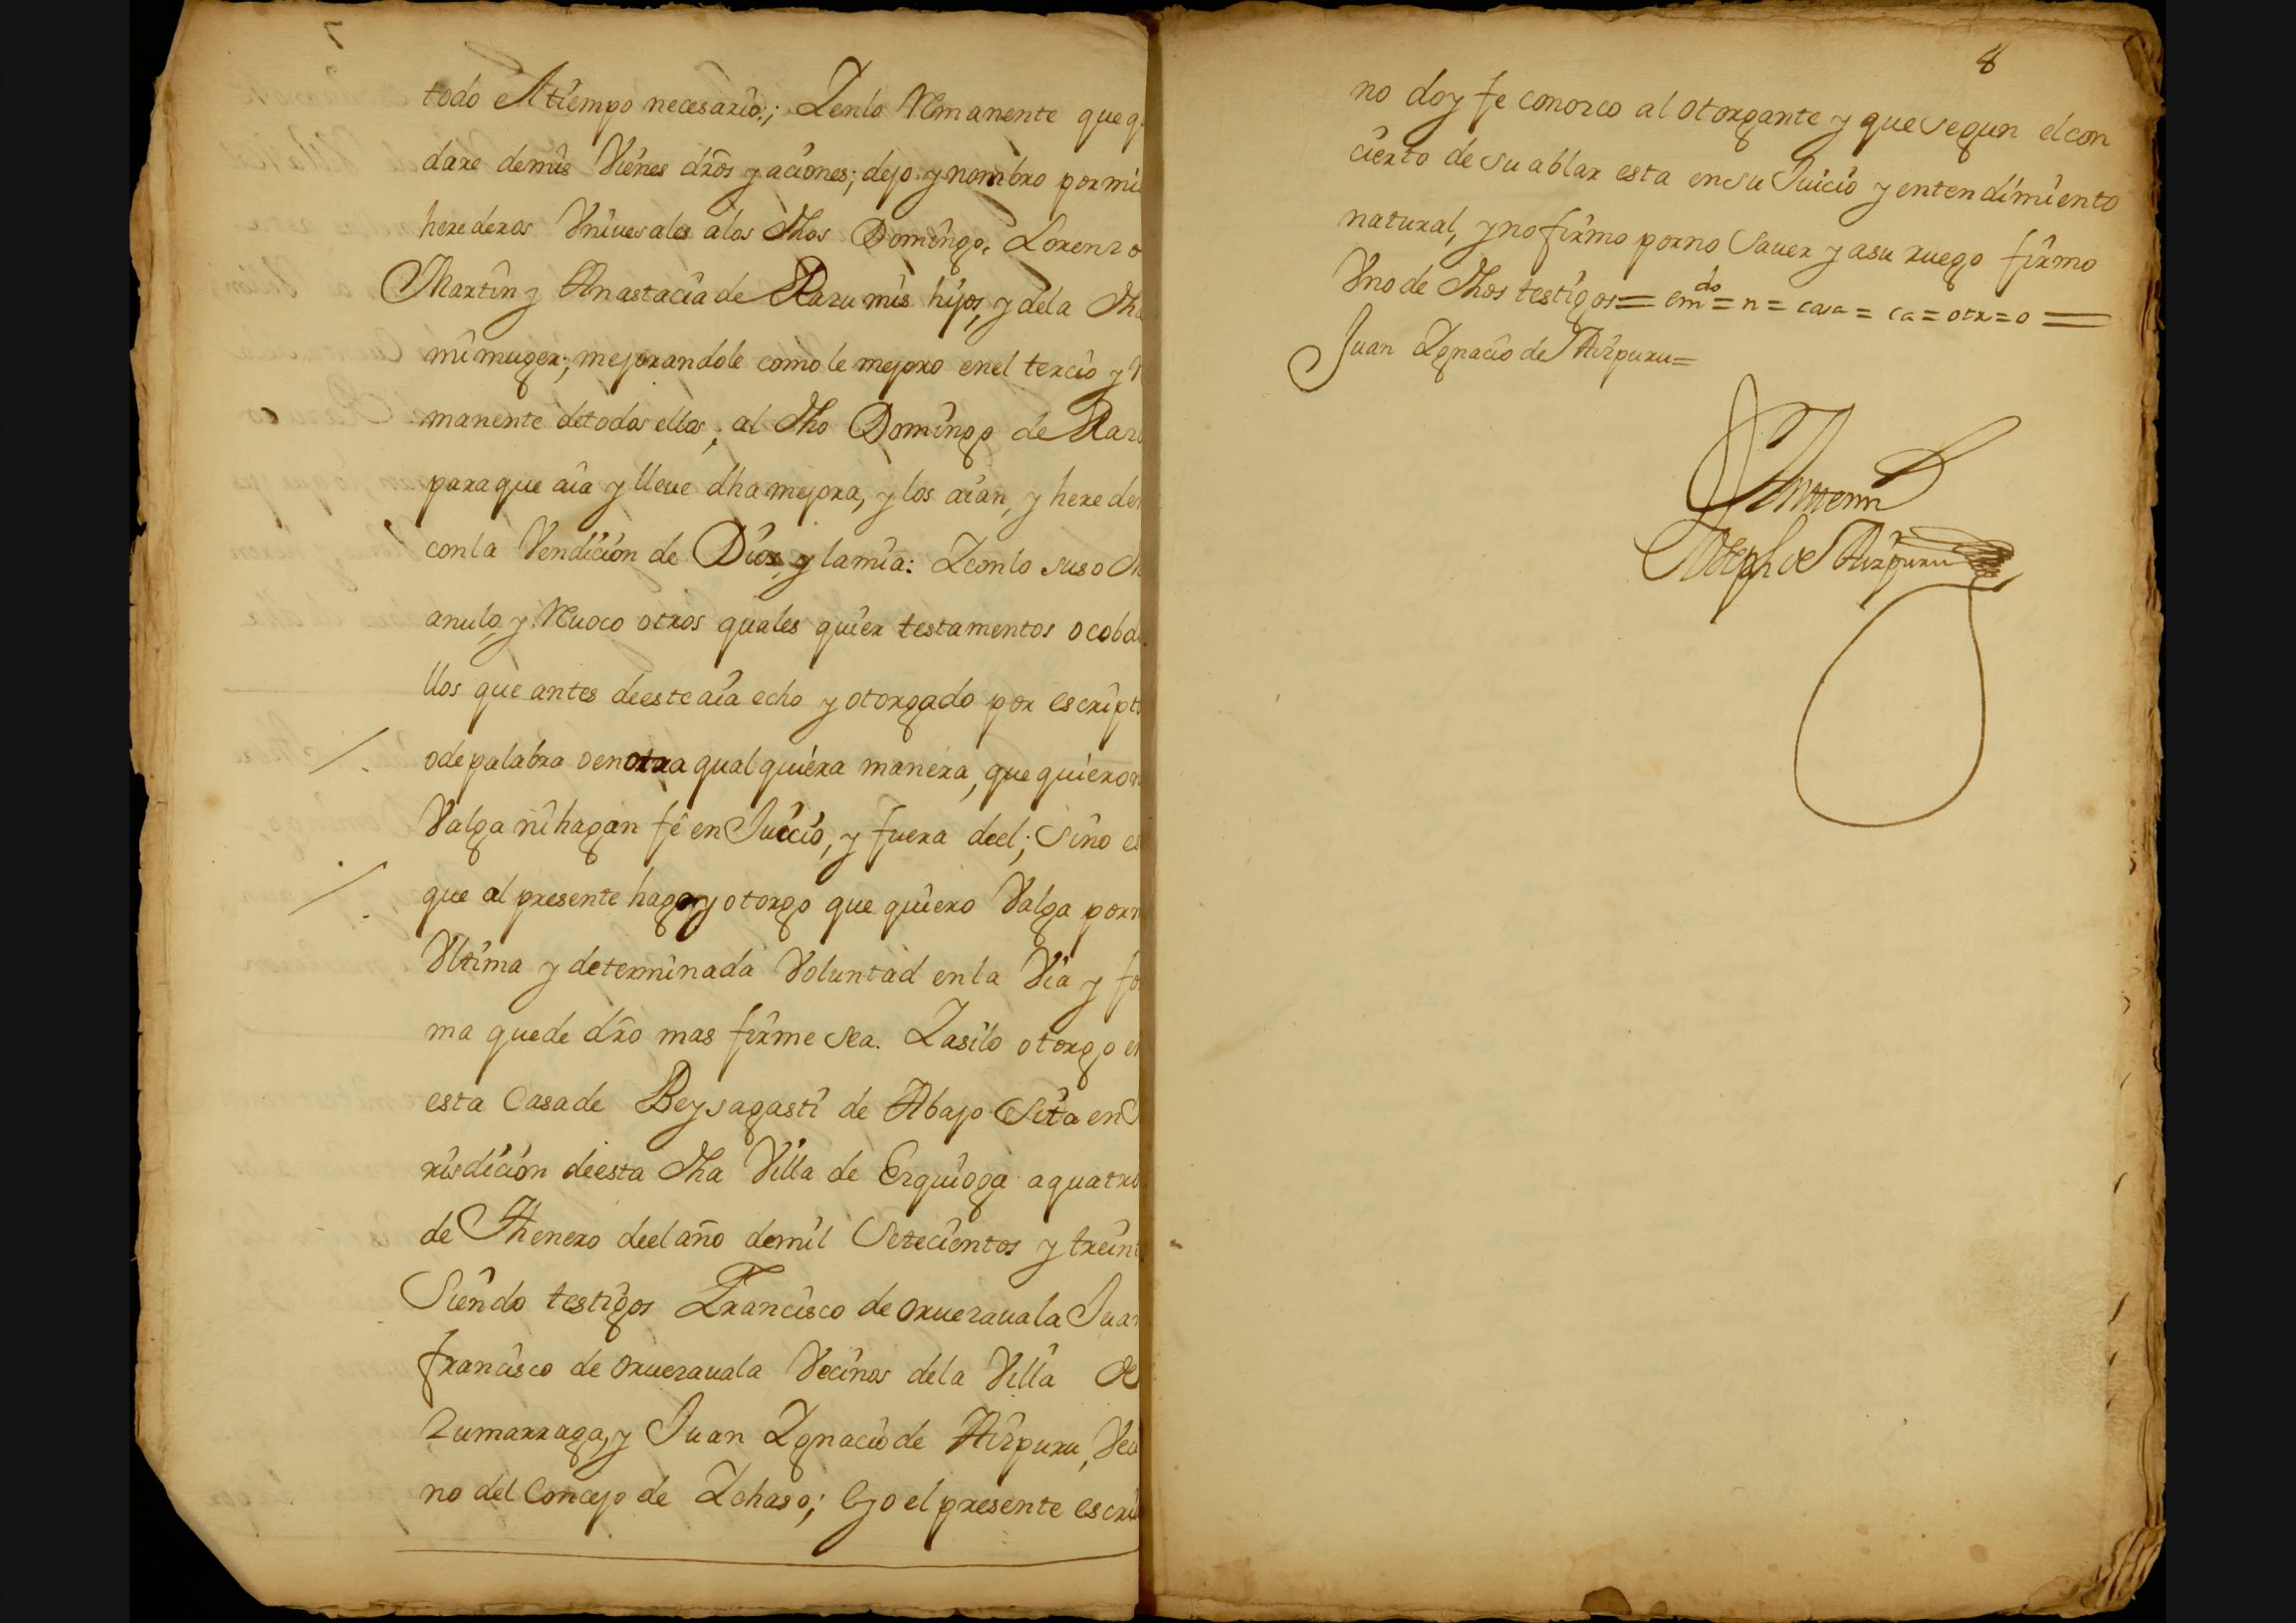 todo el tiempo necesario; Yenlo Remanente que q
dare demis Vienes dr̃os y aciones; dejo y nombro por mi
herederos Vniuesales alos dhos Domingo, Lorenzo
Martin y Anastacia de Razu mis hijos, y dela dha
mi muger; mejorandole como le mejoro enel tercio y R
manente detodos ellos, al dho Domingo de Razu
paraque aia y lleue dha mejora, y los aian, y hereden
conla Vendicion de Dios, y lamia: Yconlo suso dh
anulo, y Reuoco otros quales quier testamentos o cobdi
llos que antes deeste aia echo y otorgado por escripto
ode palabra o en otra qualquiera manera, que quiero n
Valga ni hagan fê en Juicio, y fuera deel; sino es
que al presente hago y otorgo que quiero Valga por m
Vltima y determinada Voluntad enla Via y for
ma quede dr̃o mas firme sea. Yasilo otorgo en
esta Casa de Beysagasti de Abajo sita en Ju
risdicion deesta dha Villa de Ezquioga a quatro
de Henero deel año demil setecientos y treint
Siendo testigos Francisco de oruezauala Juan
francisco de oruezauala Vecinos dela Villa de
Zumarraga, y Juan Ygnacio de Aizpuru, Veci
no del Concejo de Ychaso; Eyo el presente escri
8
no doy fe conozco al otorgante y que segun el con
cierto de su ablar esta en su Juicio y entendimiento
natural, y no firmo por no sauer y asu ruego firmo
Vno de dhos testigos = em.do = n = casa = ca = otr = o =
Juan Ygnacio de Aizpuru =
Antemi
Joseph de Aizpuru